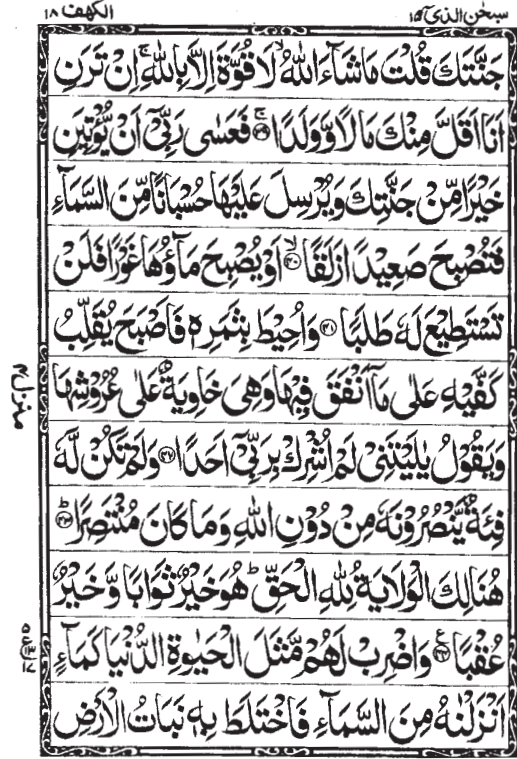 سبحٰن الذی ۱۵ الکهف ۱۸
جَنَّتَكَ قُلْتَ مَا شَآءَ اللّٰهُ ۙ لَا قُوَّةَ اِلَّا بِاللّٰهِ ۚ اِنْ تَرَنِ
اَنَا اَقَلَّ مِنْكَ مَالًا وَّوَلَدًا ۚ‏﴿۳۹﴾ فَعَسٰى رَبِّيْۤ اَنْ يُّؤْتِيَنِ
خَيْرًا مِّنْ جَنَّتِكَ وَيُرْسِلَ عَلَيْهَا حُسْبَانًا مِّنَ السَّمَآءِ
فَتُصْبِحَ صَعِيْدًا زَلَقًا ۙ‏﴿۴۰﴾ اَوْ يُصْبِحَ مَآؤُهَا غَوْرًا فَلَنْ
تَسْتَطِيْعَ لَهٗ طَلَبًا ﴿۴۱﴾ وَاُحِيْطَ بِثَمَرِهٖ فَاَصْبَحَ يُقَلِّبُ
كَفَّيْهِ عَلٰى مَاۤ اَنْفَقَ فِيْهَا وَهِيَ خَاوِيَةٌ عَلٰى عُرُوْشِهَا
وَيَقُوْلُ يٰلَيْتَنِيْ لَمْ اُشْرِكْ بِرَبِّيْۤ اَحَدًا ﴿۴۲﴾ وَلَمْ تَكُنْ لَّهٗ
فِئَةٌ يَّنْصُرُوْنَهٗ مِنْ دُوْنِ اللّٰهِ وَمَا كَانَ مُنْتَصِرًا ؕ‏﴿۴۳﴾
هُنَالِكَ الْوَلَايَةُ لِلّٰهِ الْحَقِّ ؕ هُوَ خَيْرٌ ثَوَابًا وَّخَيْرٌ
عُقْبًا ﴿۴۴﴾ ع وَاضْرِبْ لَهُمْ مَّثَلَ الْحَيٰوةِ الدُّنْيَا كَمَآءٍ
اَنْزَلْنٰهُ مِنَ السَّمَآءِ فَاخْتَلَطَ بِهٖ نَبَاتُ الْاَرْضِ
منزل ۴